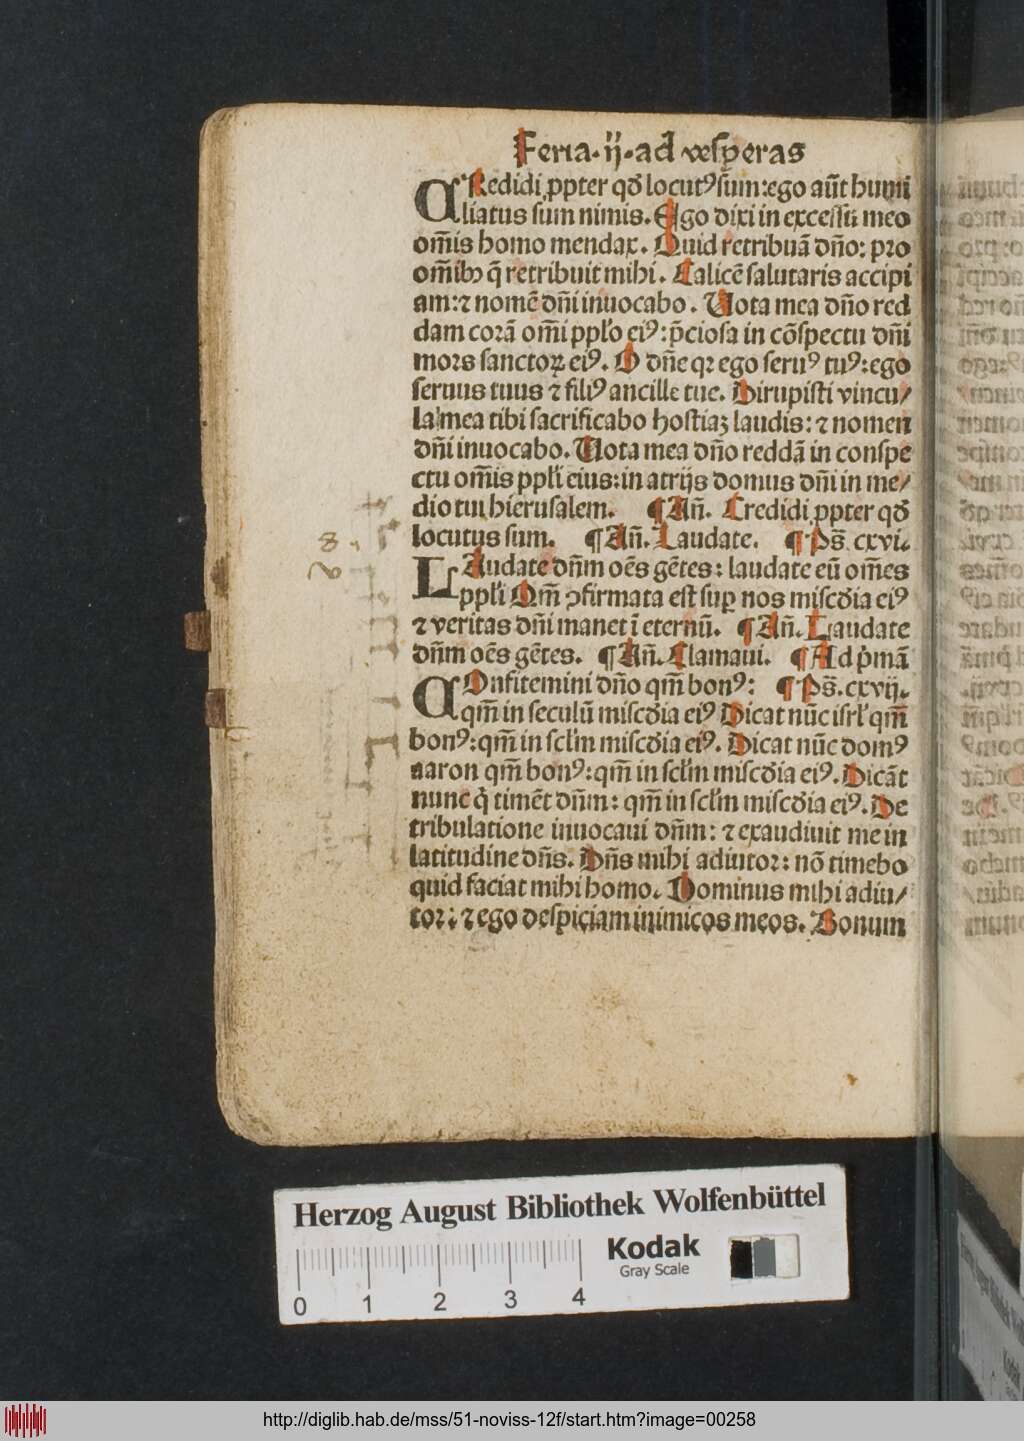 Feria. ij. ad vesperas
CRedidi ꝓpter qḋ locutꝰ sum: ego aūt humi
liatus sum nimis. Ego dixi in excessu meo
om̄is homo mendax. Quid retribuā dn̄o: pro
om̄ibꝫ q̄ retribuit mihi. Calicē salutaris accipi
am: ⁊ nomē dn̄i inuocabo. Uota mea dn̄o red
dam corā om̄i ppl'o eiꝰ: p̄ciosa in cōspectu dn̄i
mors sanctoꝝ eiꝰ. O dn̄e qꝛ ego seruꝰ tuꝰ: ego
seruus tuus ⁊ filiꝰ ancille tue. Dirupisti vincu/
la mea tibi sacrificabo hostiaꝫ laudis: ⁊ nomen
dn̄i inuocabo. Uota mea dn̄o reddā in conspe
ctu om̄is ppl'i eius: in atrijs domus dn̄i in me/
dio tui hierusalem. ¶ An̄. Credidi ꝓpter qḋ
locutus sum. ¶ An̄. Laudate. ¶ Ps̄. cxvi.
LAudate dn̄m oēs gētes: laudate eū om̄es
ppl'i Qm̄ ꝯfirmata est suꝑ nos misc̄dia eiꝰ
⁊ veritas dn̄i manet ī eternū. ¶ An̄. Laudate
dn̄m oēs gētes. ¶ An̄. Clamaui. ¶ Ad p̄mā
COnfitemini dn̄o qm̄ bonꝰ: ¶ Ps̄. cxvij.
qm̄ in seculū misc̄dia eiꝰ Dicat nūc isrl' qm̄
bonꝰ: qm̄ in scl'm misc̄dia eiꝰ. Dicat nūc domꝰ
aaron qm̄ bonꝰ: qm̄ in scl'm misc̄dia eiꝰ. Dicāt
nunc q̇ timēt dn̄m: qm̄ in scl'm misc̄dia eiꝰ. De
tribulatione inuocaui dn̄m: ⁊ exaudiuit me in
latitudine dn̄s. Dn̄s mihi adiutor: nō timebo
quid faciat mihi homo. Dominus mihi adiu/
tor: ⁊ ego despiciam inimicos meos. Bonum
Herzog August Bibliothek Wolfenbüttel
Kodak
Gray Scale
0 1 2 3 4
http://diglib.hab.de/mss/51-noviss-12f/start.htm?image=00258